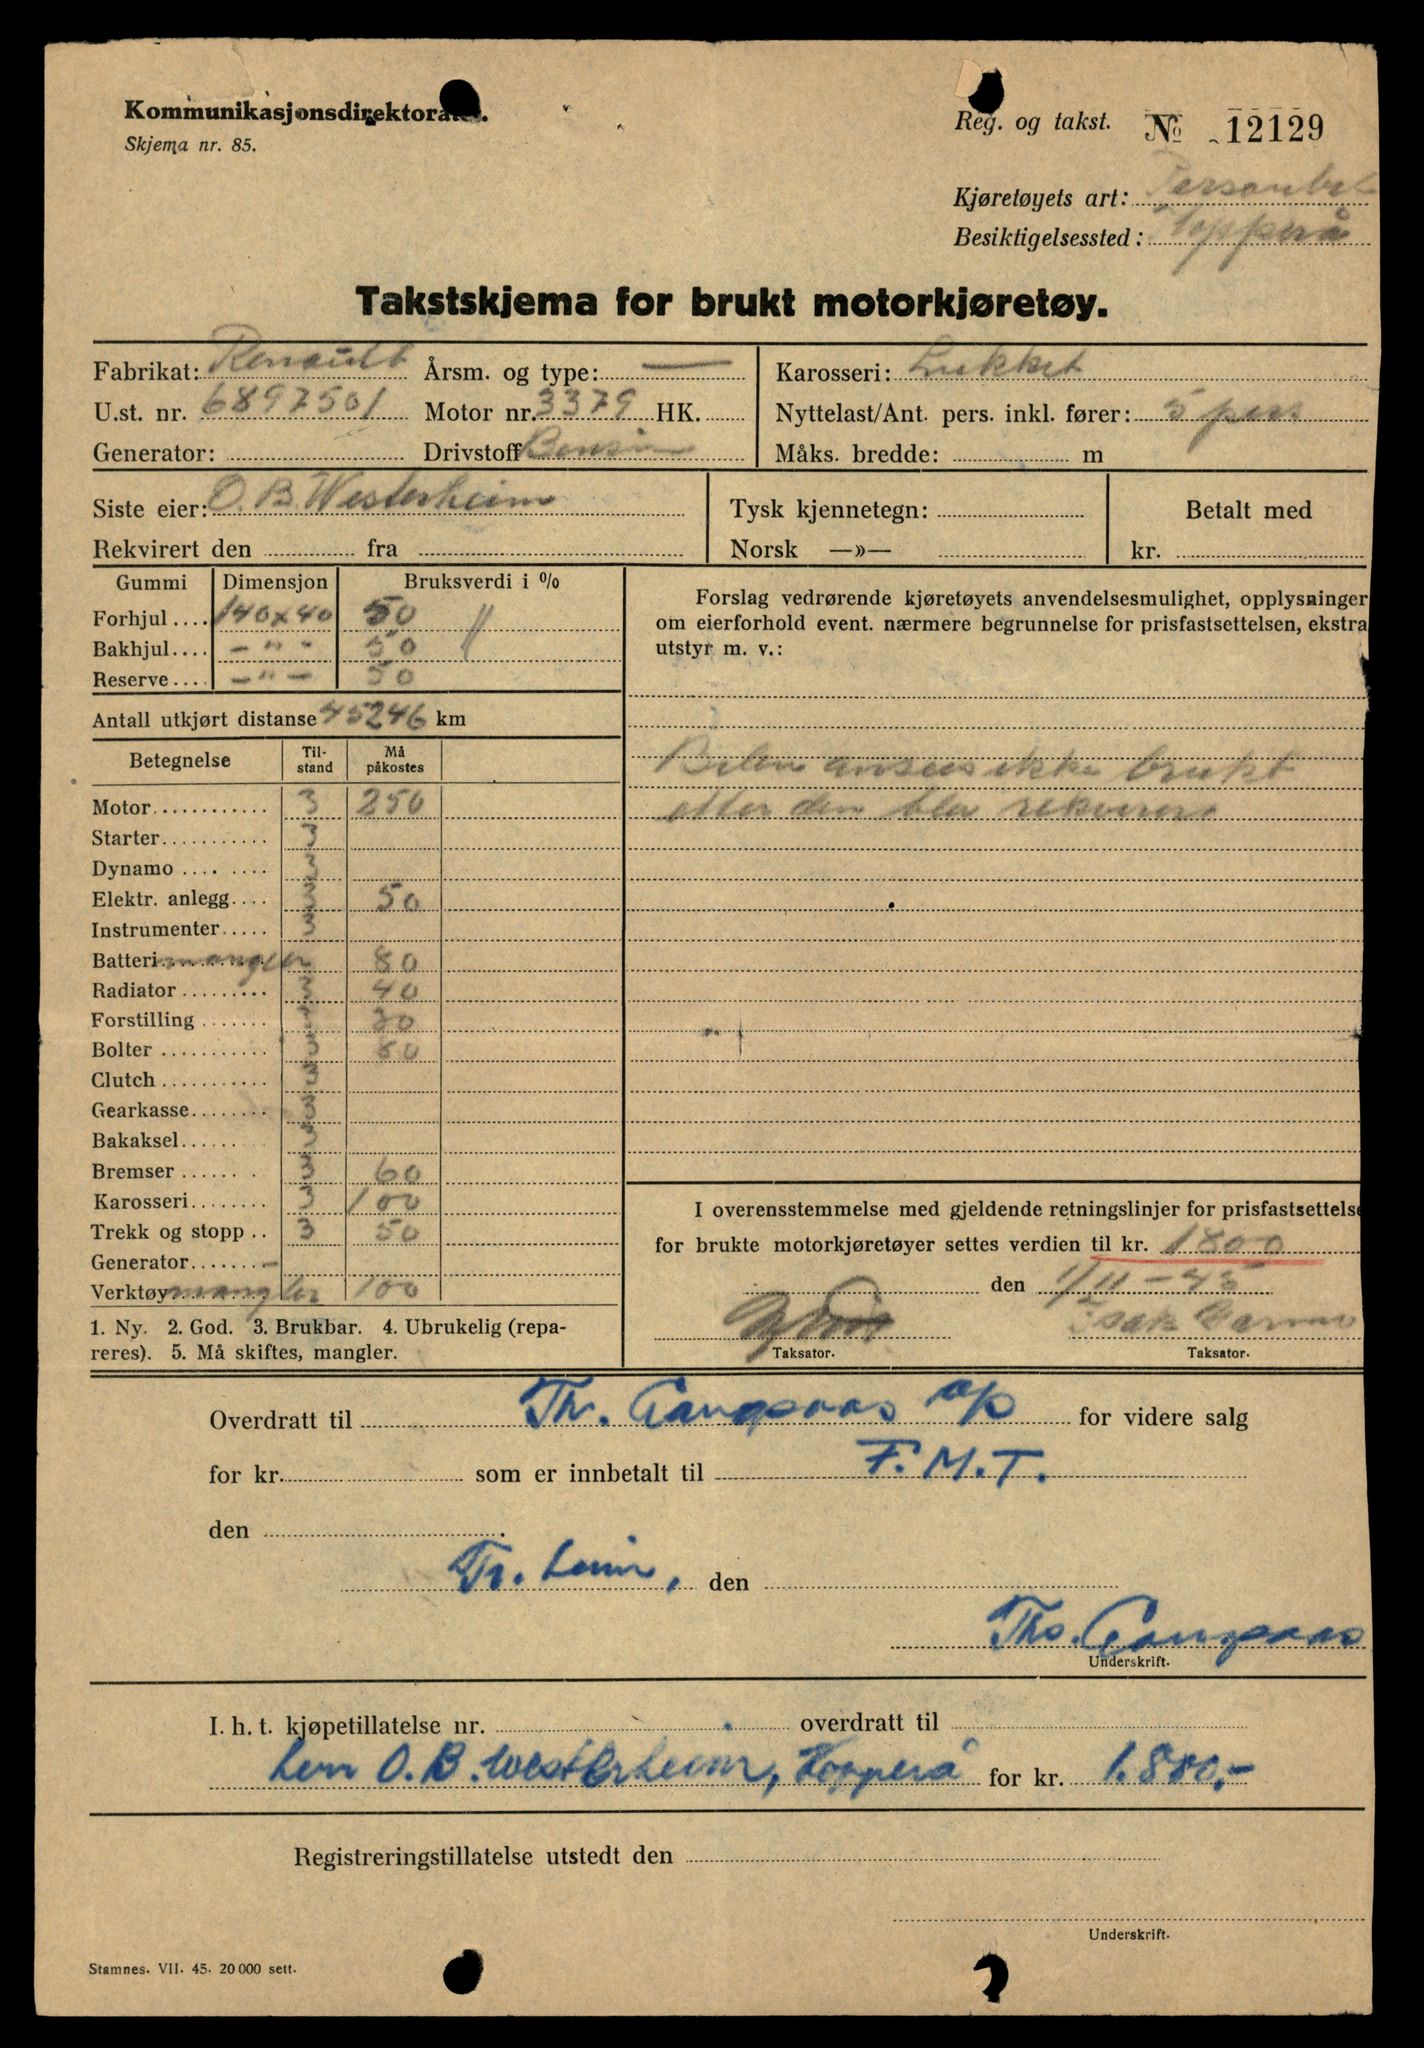 Kommunikasjonsdirektoratet.
Skjema nr. 85.
Reg. og takst. № 12129
Kjøretøyets art: Personbil
Besiktigelsessted: Hopperå
Takstskjema for brukt motorkjøretøy.
Fabrikat: Renault Årsm. og type: —
U.st. nr. 6897501 Motor nr. 3379 HK.
Generator: Drivstoff Bensin
Karosseri: Lukket
Nyttelast/Ant. pers. inkl. fører: 5 pers
Måks. bredde: m
Siste eier: O. B. Westerheim
Rekvirert den fra
Tysk kjennetegn:
Norsk —»—
Betalt med
kr.
Gummi Dimensjon Bruksverdi i %
Forhjul.... 140x40 50 //
Bakhjul.... - " - 50
Reserve.... - " - 50
Antall utkjørt distanse 45246 km
Betegnelse Til-stand Må påkostes
Motor 3 250
Starter 3
Dynamo 3
Elektr. anlegg 3 50
Instrumenter 3
Batteri mangler 80
Radiator 3 40
Forstilling 3 30
Bolter 3 80
Clutch 3
Gearkasse 3
Bakaksel 3
Bremser 3 60
Karosseri 3 100
Trekk og stopp 3 50
Generator -
Verktøy mangler 100
1. Ny. 2. God. 3. Brukbar. 4. Ubrukelig (repa-
reres). 5. Må skiftes, mangler.
Forslag vedrørende kjøretøyets anvendelsesmulighet, opplysninger
om eierforhold event. nærmere begrunnelse for prisfastsettelsen, ekstra
utstyr m. v.:
Bilen ansees ikke brukt
etter den blev rekvirert
I overensstemmelse med gjeldende retningslinjer for prisfastsettelse
for brukte motorkjøretøyer settes verdien til kr. 1800
den 1/11-45
Isak
Taksator. Taksator.
Overdratt til Th. Gangsaas A/S for videre salg
for kr. som er innbetalt til F.M.T.
den
Tr.heim, den
Tho. Gangsaas
Underskrift.
I. h. t. kjøpetillatelse nr. overdratt til
herr O. B. Westerheim, Hopperå for kr. 1.800,-
Registreringstillatelse utstedt den
Underskrift.
Stamnes. VII. 45. 20 000 sett.